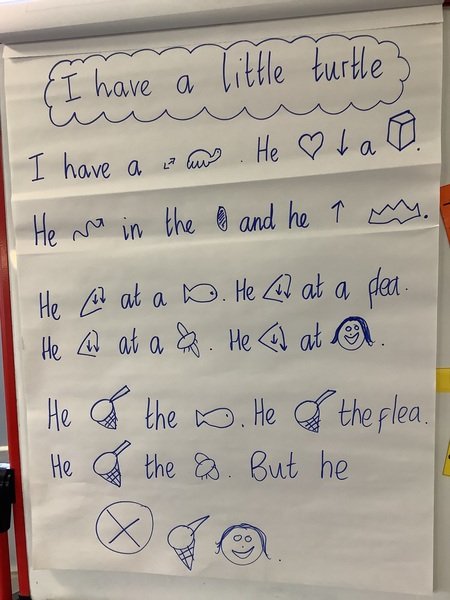 I have a little turtle
I have a . He a .
He in the and he .
He at a . He at a flea.
He at a . He at .
He the . He the flea.
He the . But he
.